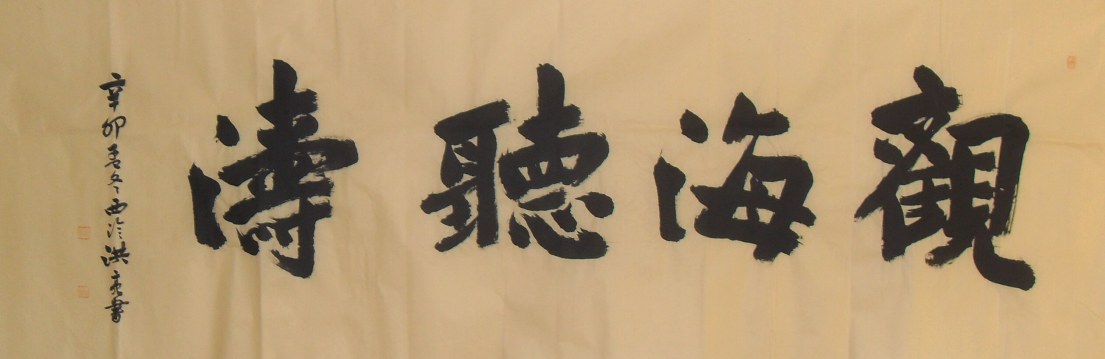 觀海聽濤
辛卯孟冬西泠洪亮書